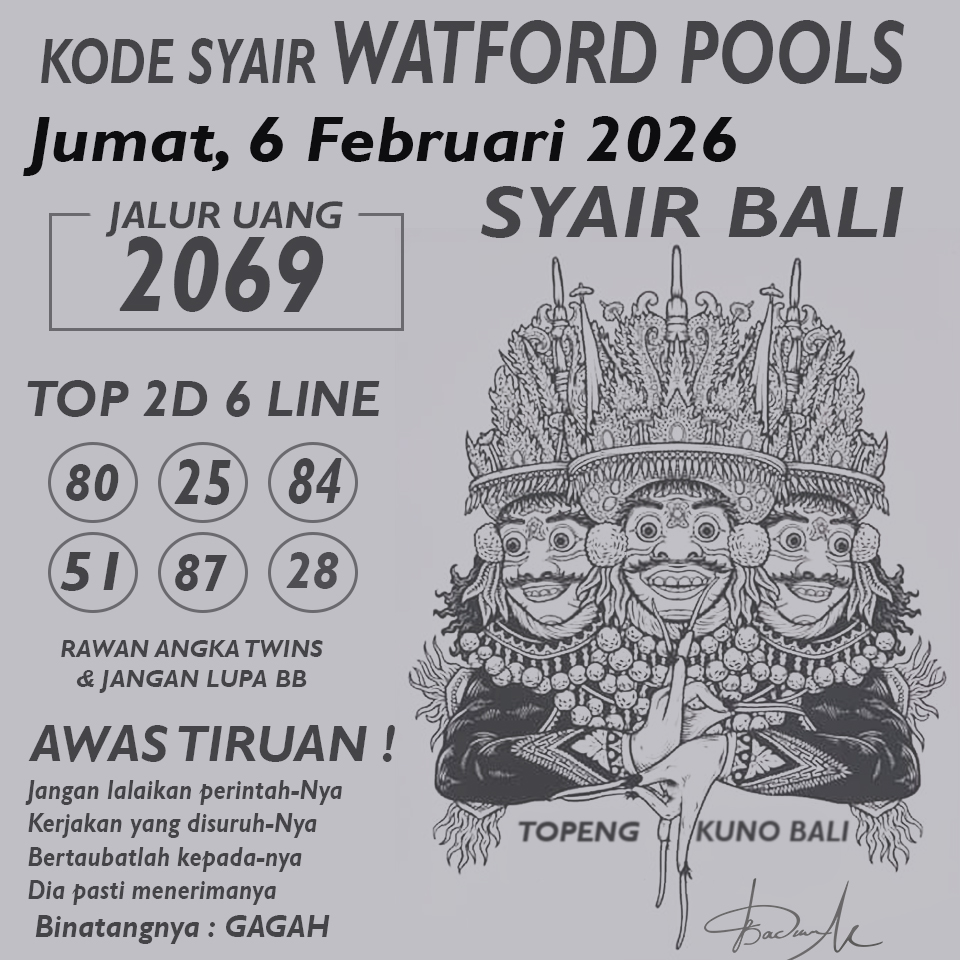 KODE SYAIR WATFORD POOLS
Jumat, 6 Februari 2026
SYAIR BALI
JALUR UANG
2069
TOP 2D 6 LINE
80 25 84
51 87 28
RAWAN ANGKA TWINS
& JANGAN LUPA BB
AWAS TIRUAN !
Jangan lalaikan perintah-Nya
Kerjakan yang disuruh-Nya
Bertaubatlah kepada-nya
Dia pasti menerimanya
Binatangnya : GAGAH
TOPENG KUNO BALI